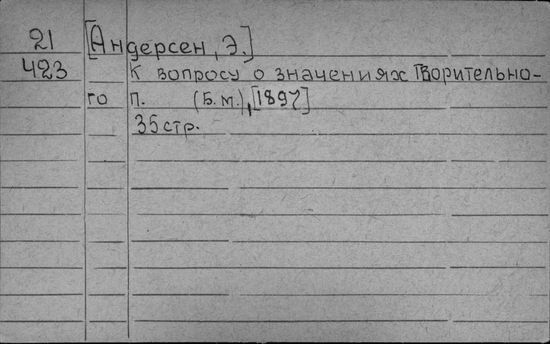 21 [Андерсен, Э.]
423 К вопросу о значениях Творительно-
го п. (Б.м.), [1897]
35 стр.